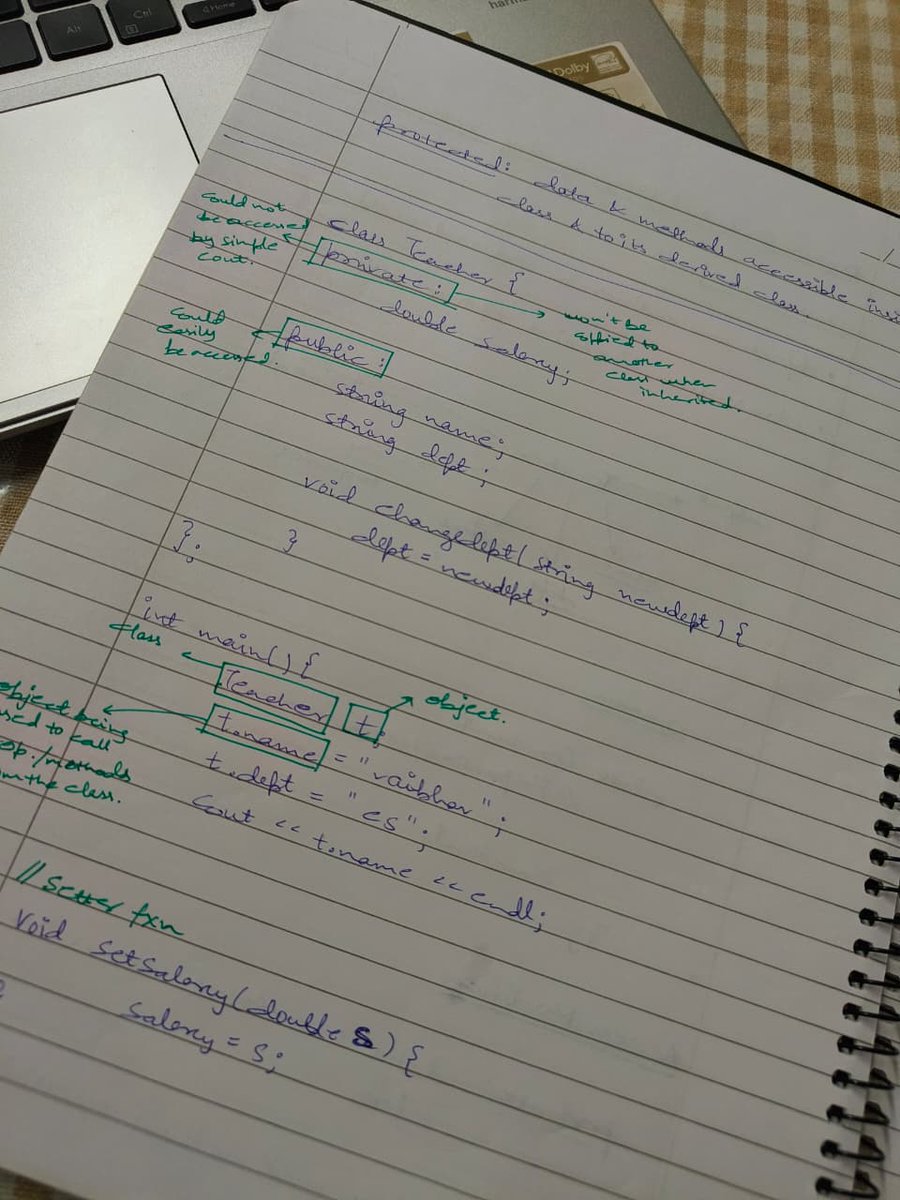 Alt
Ctrl
Home
Dolby
protected: data & methods accessible insi
class & to its derived class.
class Teacher {
could not
be accessed
by simple
cout.
private:
won't be
to
another
class when
inherited.
double salary;
could
easily
be accessed.
public:
string name;
string dept;
void changedept(string newdept) {
dept = newdept;
}
};
int main() {
class
Teacher t;
object.
object being
used to call
/methods
the class.
t.name = "vaibhav";
t.dept = "cs";
cout << t.name << endl;
// Setter fxn
void setSalary(double s) {
salary = s;